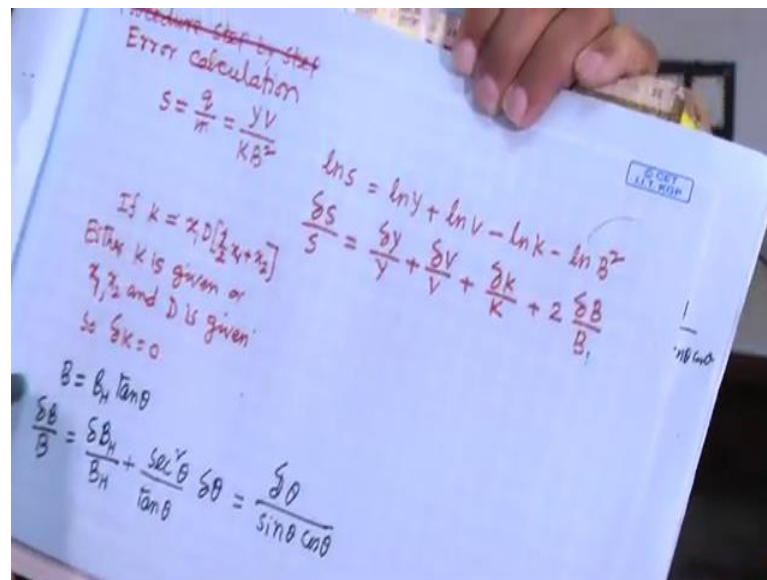 Procedure Step by Step
Error calculation
S = q/m = yV/KB²
ln s = ln y + ln V - ln K - ln B²
δS/S = δy/y + δV/V + δK/K + 2 δB/B
If K = x₁D[½x₁+x₂]
Either K is given or
x₁, x₂ and D is given
so δK=0
B = B_H Tanθ
δB/B = δB_H/B_H + sec²θ/tanθ δθ = δθ/sinθ cosθ
© CET
I.I.T. KGP